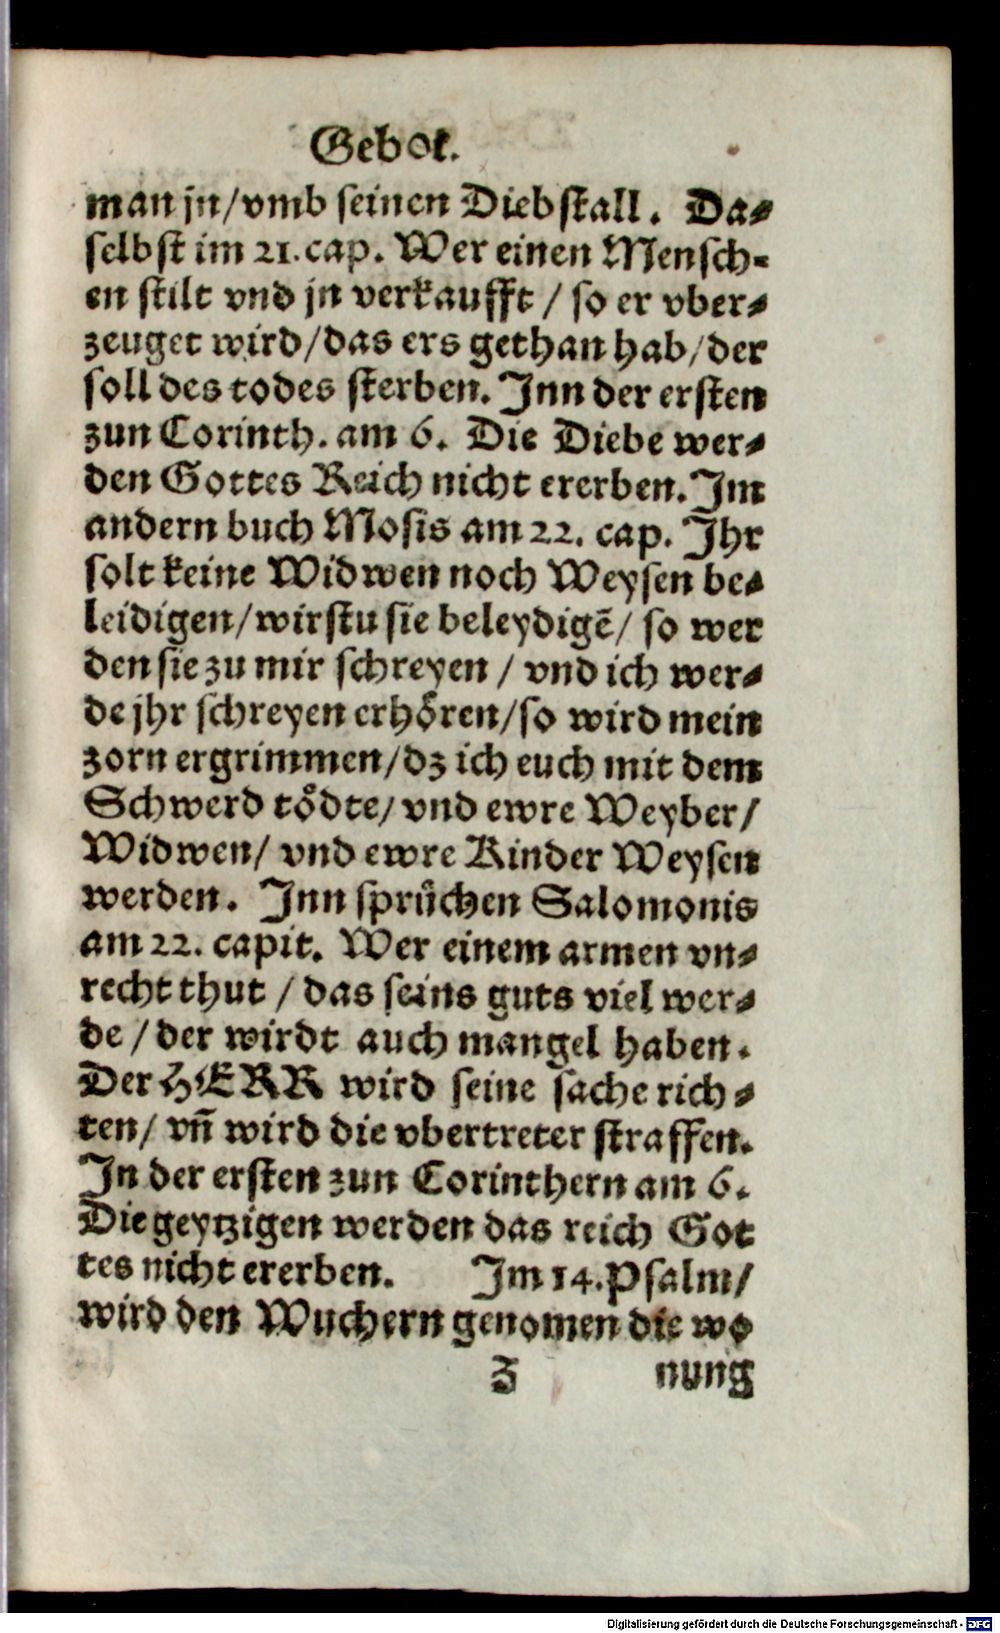 Gebot.
man jn/vmb seinen Diebstall. Da-
selbst im 21. cap. Wer einen Mensch-
en stilt vnd jn verkaufft / so er vber-
zeuget wird/das ers gethan hab/der
soll des todes sterben. Inn der ersten
zun Corinth. am 6. Die Diebe wer-
den Gottes Reich nicht ererben. Im
andern buch Mosis am 22. cap. Ihr
solt keine Widwen noch Weysen be-
leidigen/wirstu sie beleydigẽ/ so wer
den sie zu mir schreyen / vnd ich wer-
de jhr schreyen erhoͤren/so wird mein
zorn ergrimmen/dz ich euch mit dem
Schwerd toͤdte/ vnd ewre Weyber/
Widwen/ vnd ewre Kinder Weysen
werden. Inn spruͤchen Salomonis
am 22. capit. Wer einem armen vn-
recht thut / das seins guts viel wer-
de / der wirdt auch mangel haben.
Der HERR wird seine sache rich-
ten/ vñ wird die vbertreter straffen.
In der ersten zun Corinthern am 6.
Die geytzigen werden das reich Got
tes nicht ererben. Im 14. Psalm/
wird den Wuchern genomen die wo
Z nung
Digitalisierung gefördert durch die Deutsche Forschungsgemeinschaft - DFG